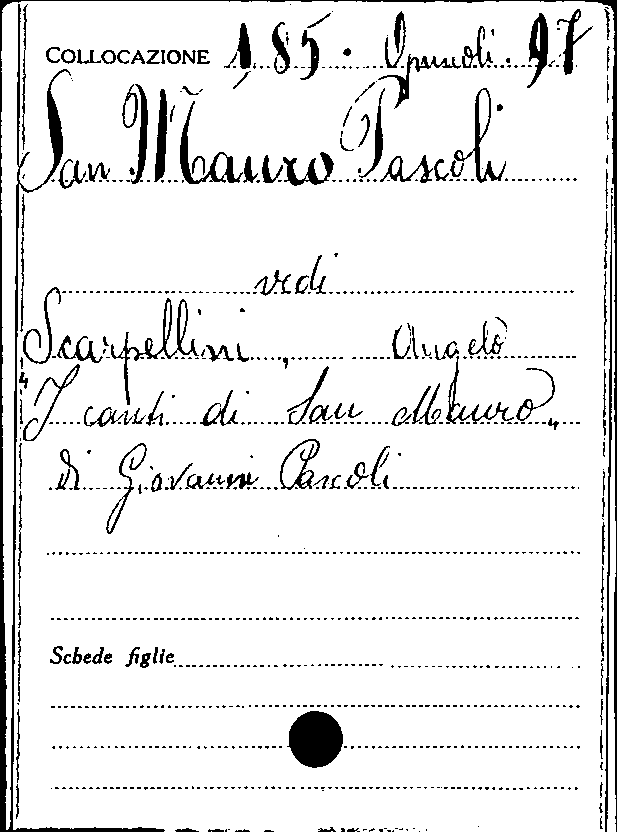 COLLOCAZIONE 185. Opuscoli. 97
San Mauro Pascoli
vedi
Scarpellini, Angelo
"I canti di San Mauro"
di Giovanni Pascoli
Schede figlie